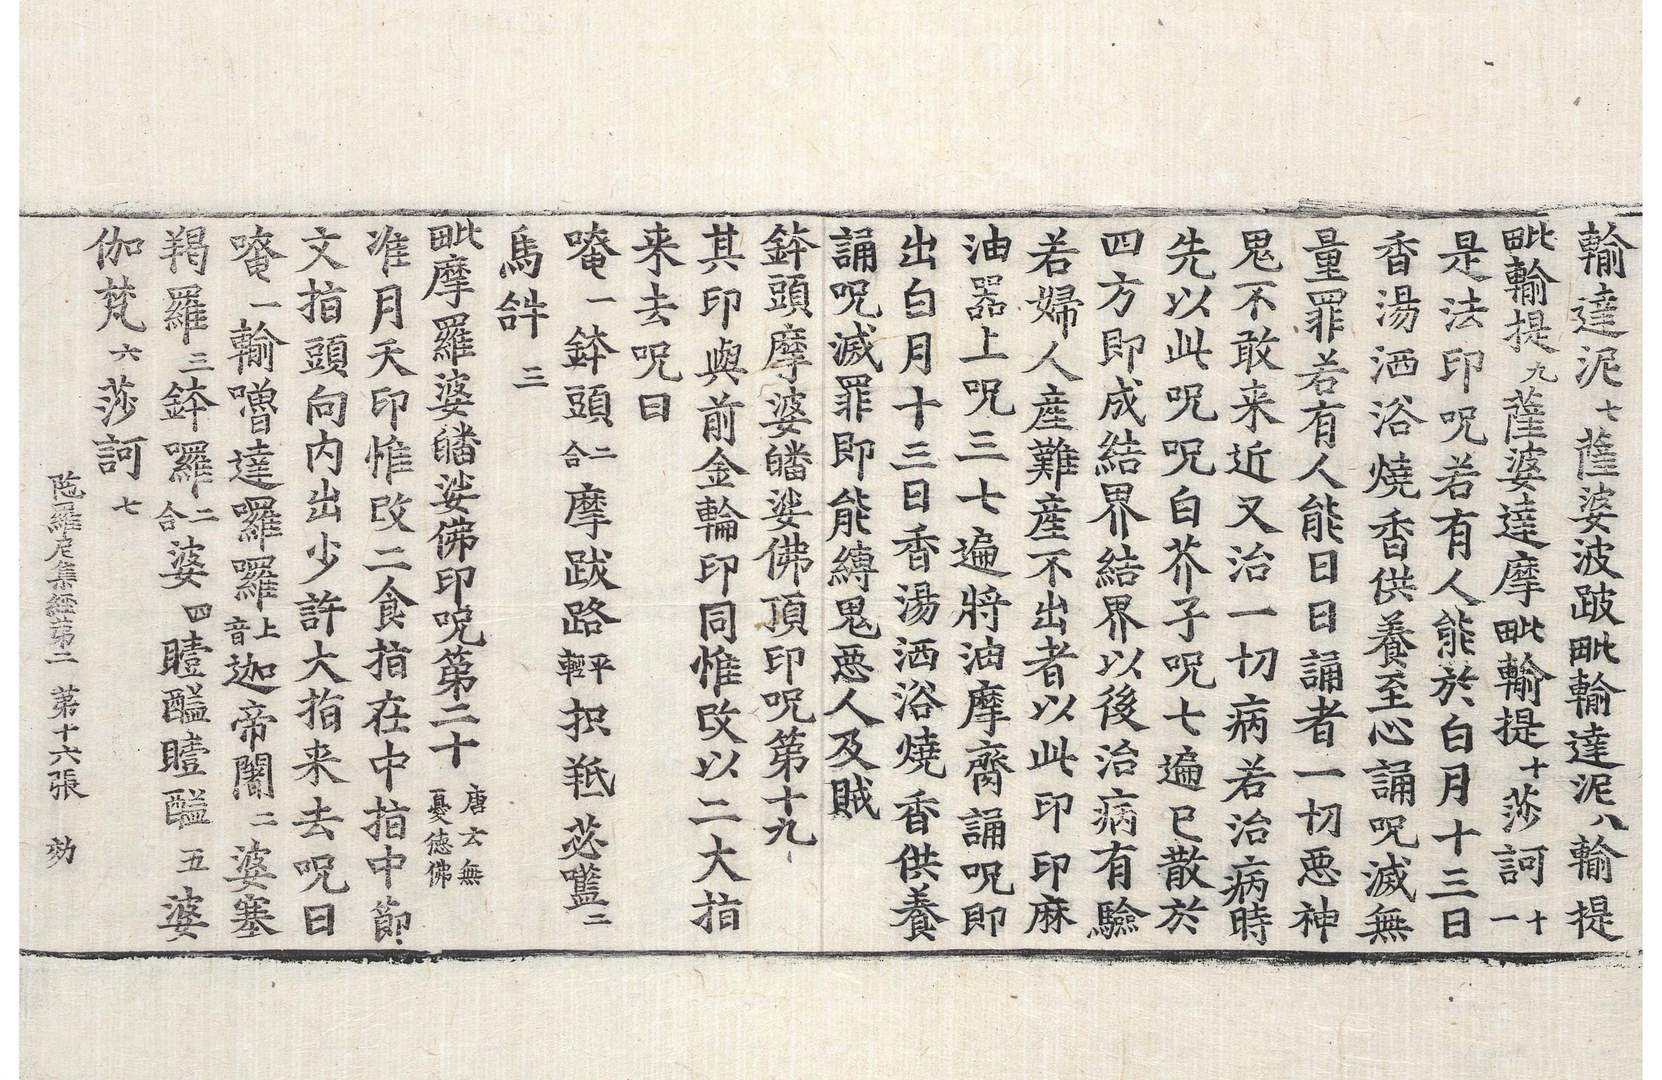 輸達泥七薩婆波跛毗輸達泥八輸提
毗輸提九薩婆達摩毗輸提十莎訶十一
是法印呪若有人能於白月十三日
香湯洒浴燒香供養至心誦呪滅無
量罪若有人能日日誦者一切惡神
鬼不敢来近又治一切病若治病時
先以此呪呪白芥子呪七遍已散於
四方即成結界結界以後治病有驗
若婦人産難産不出者以此印印麻
油器上呪三七遍將油摩齊誦呪即
出白月十三日香湯洒浴燒香供養
誦呪滅罪即能縛鬼惡人及賊
鉢頭摩婆皤娑佛頂印呪第十九
其印與前金輪印同惟改以二大指
来去呪曰
唵一鉢頭二合摩跋路平輕抧羝苾㘕二
馬𤙖三
毗摩羅婆皤娑佛印呪第二十唐云無憂德佛
准月天印惟改二食指在中指中節
文指頭向内出少許大指来去呪曰
唵一輸嚕達囉囉上音迦帝闍二婆塞
羯羅三鉢囉二合婆四瞌醯瞌醯五婆
伽梵六莎訶七
陁羅尼集經第二　第十六張　効